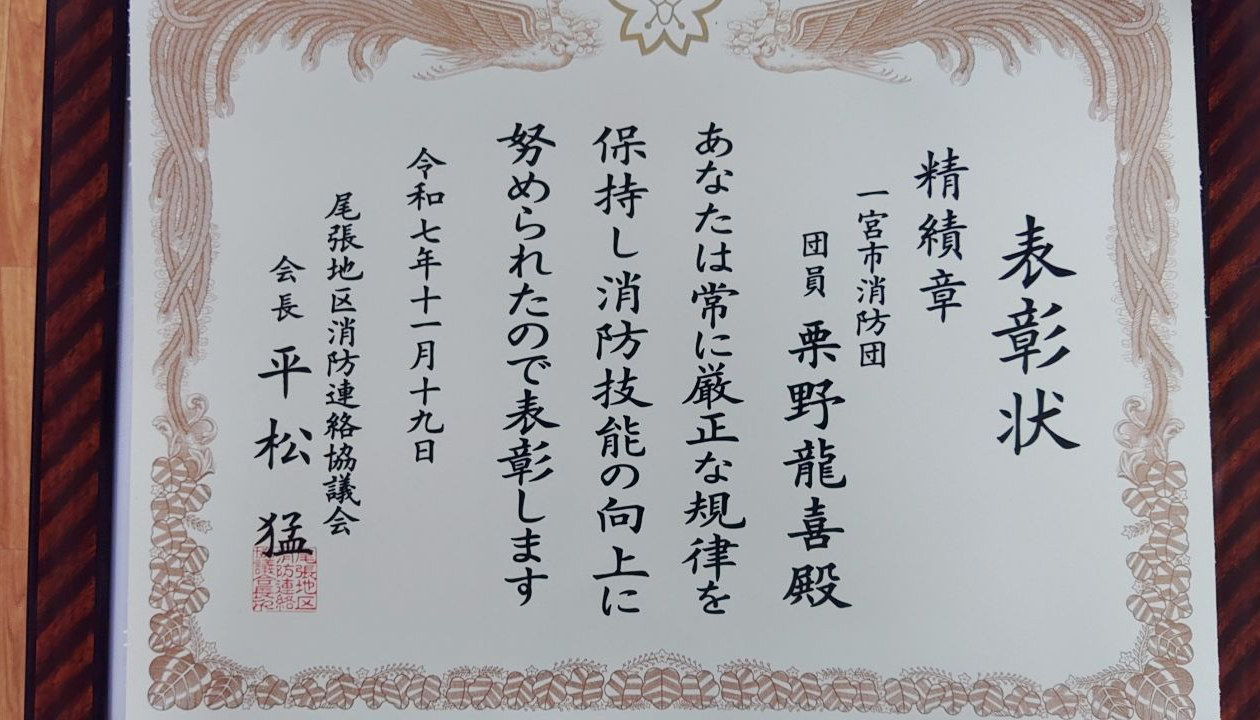 表彰状
精績章
一宮市消防団
団員 栗野龍喜殿
あなたは常に厳正な規律を
保持し消防技能の向上に
努められたので表彰します
令和七年十一月十九日
尾張地区消防連絡協議会
会長 平松 猛
尾張地区
消防連絡
協議会長印